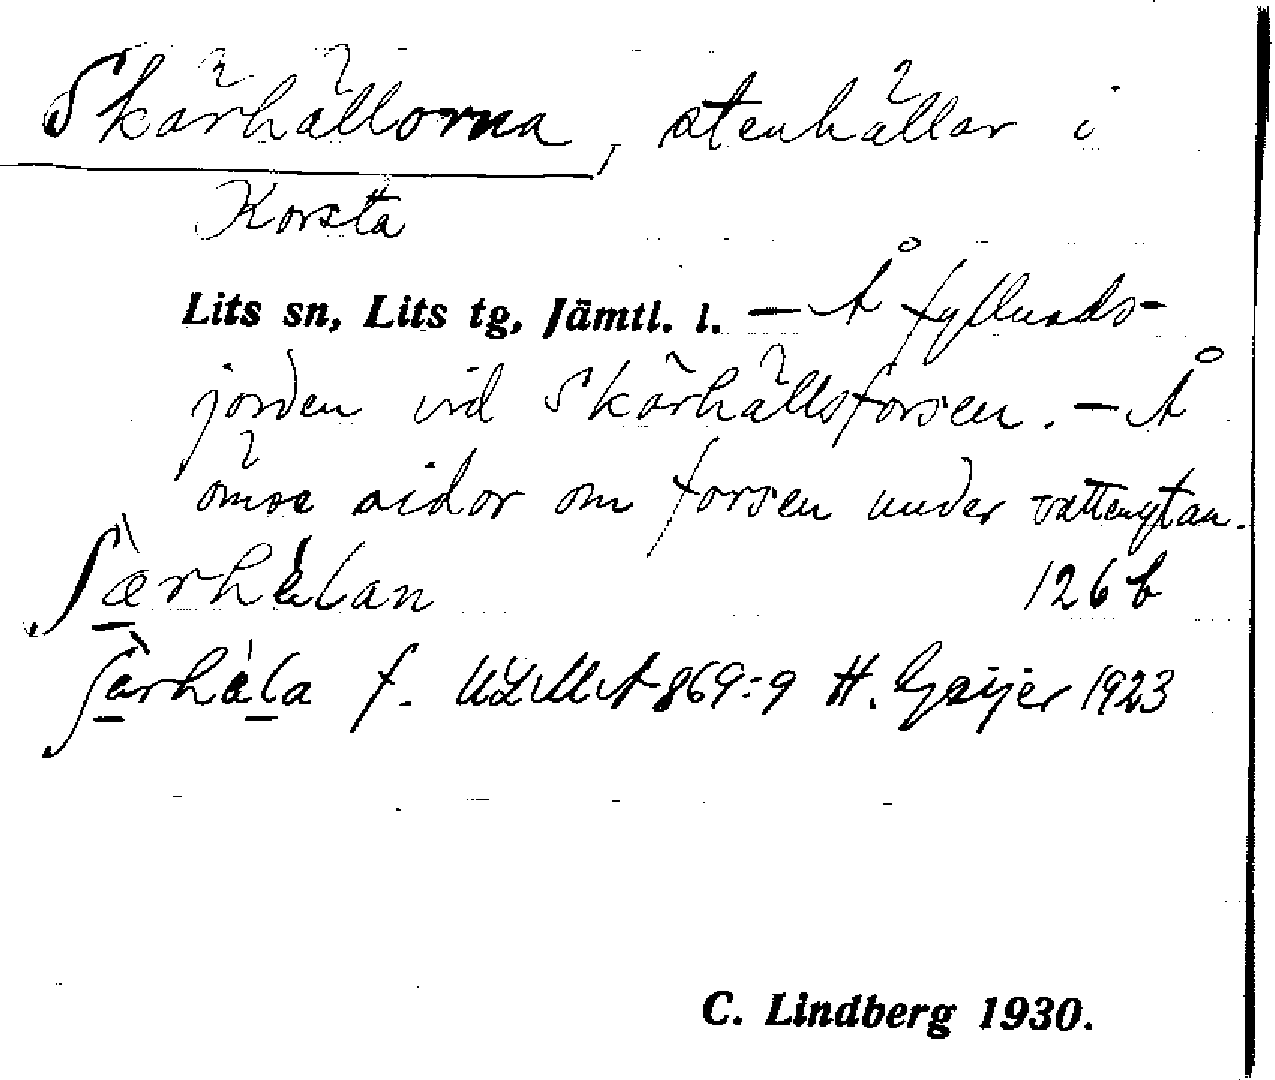 Skärhällorna, stenhällar i
Korsta
Lits sn, Lits tg, Jämtl. l. – Å fyllnads-
jorden vid Skärhällsforsen. – Å
ömse sidor om forsen under vattenytan.
ʃærhèlan 126 b
ʃèrhèla f. ULMA 869:9 H. Geijer 1923
C. Lindberg 1930.